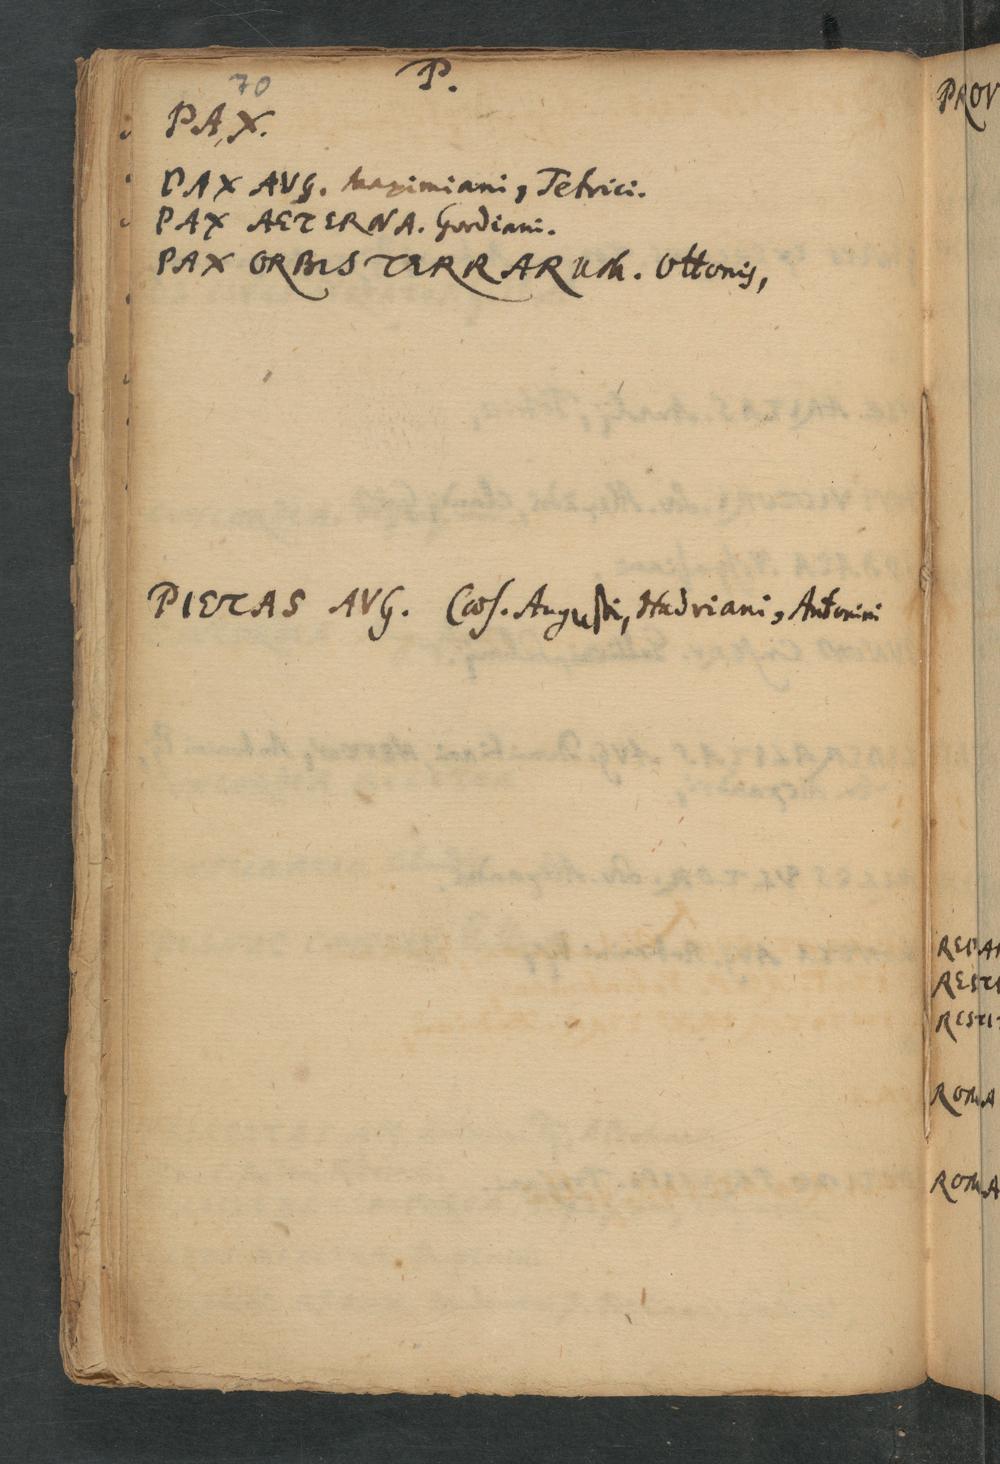 70
P.
PAX.
PAX AVG. Maximiani, Tetrici.
PAX AETERNA. Gordiani.
PAX ORBIS TERRARUM. Ottonis,
PIETAS AVG. Caes. Augusti, Hadriani, Antonini
PROV
REPA
RESTI
RESTIT
ROMA
ROMA